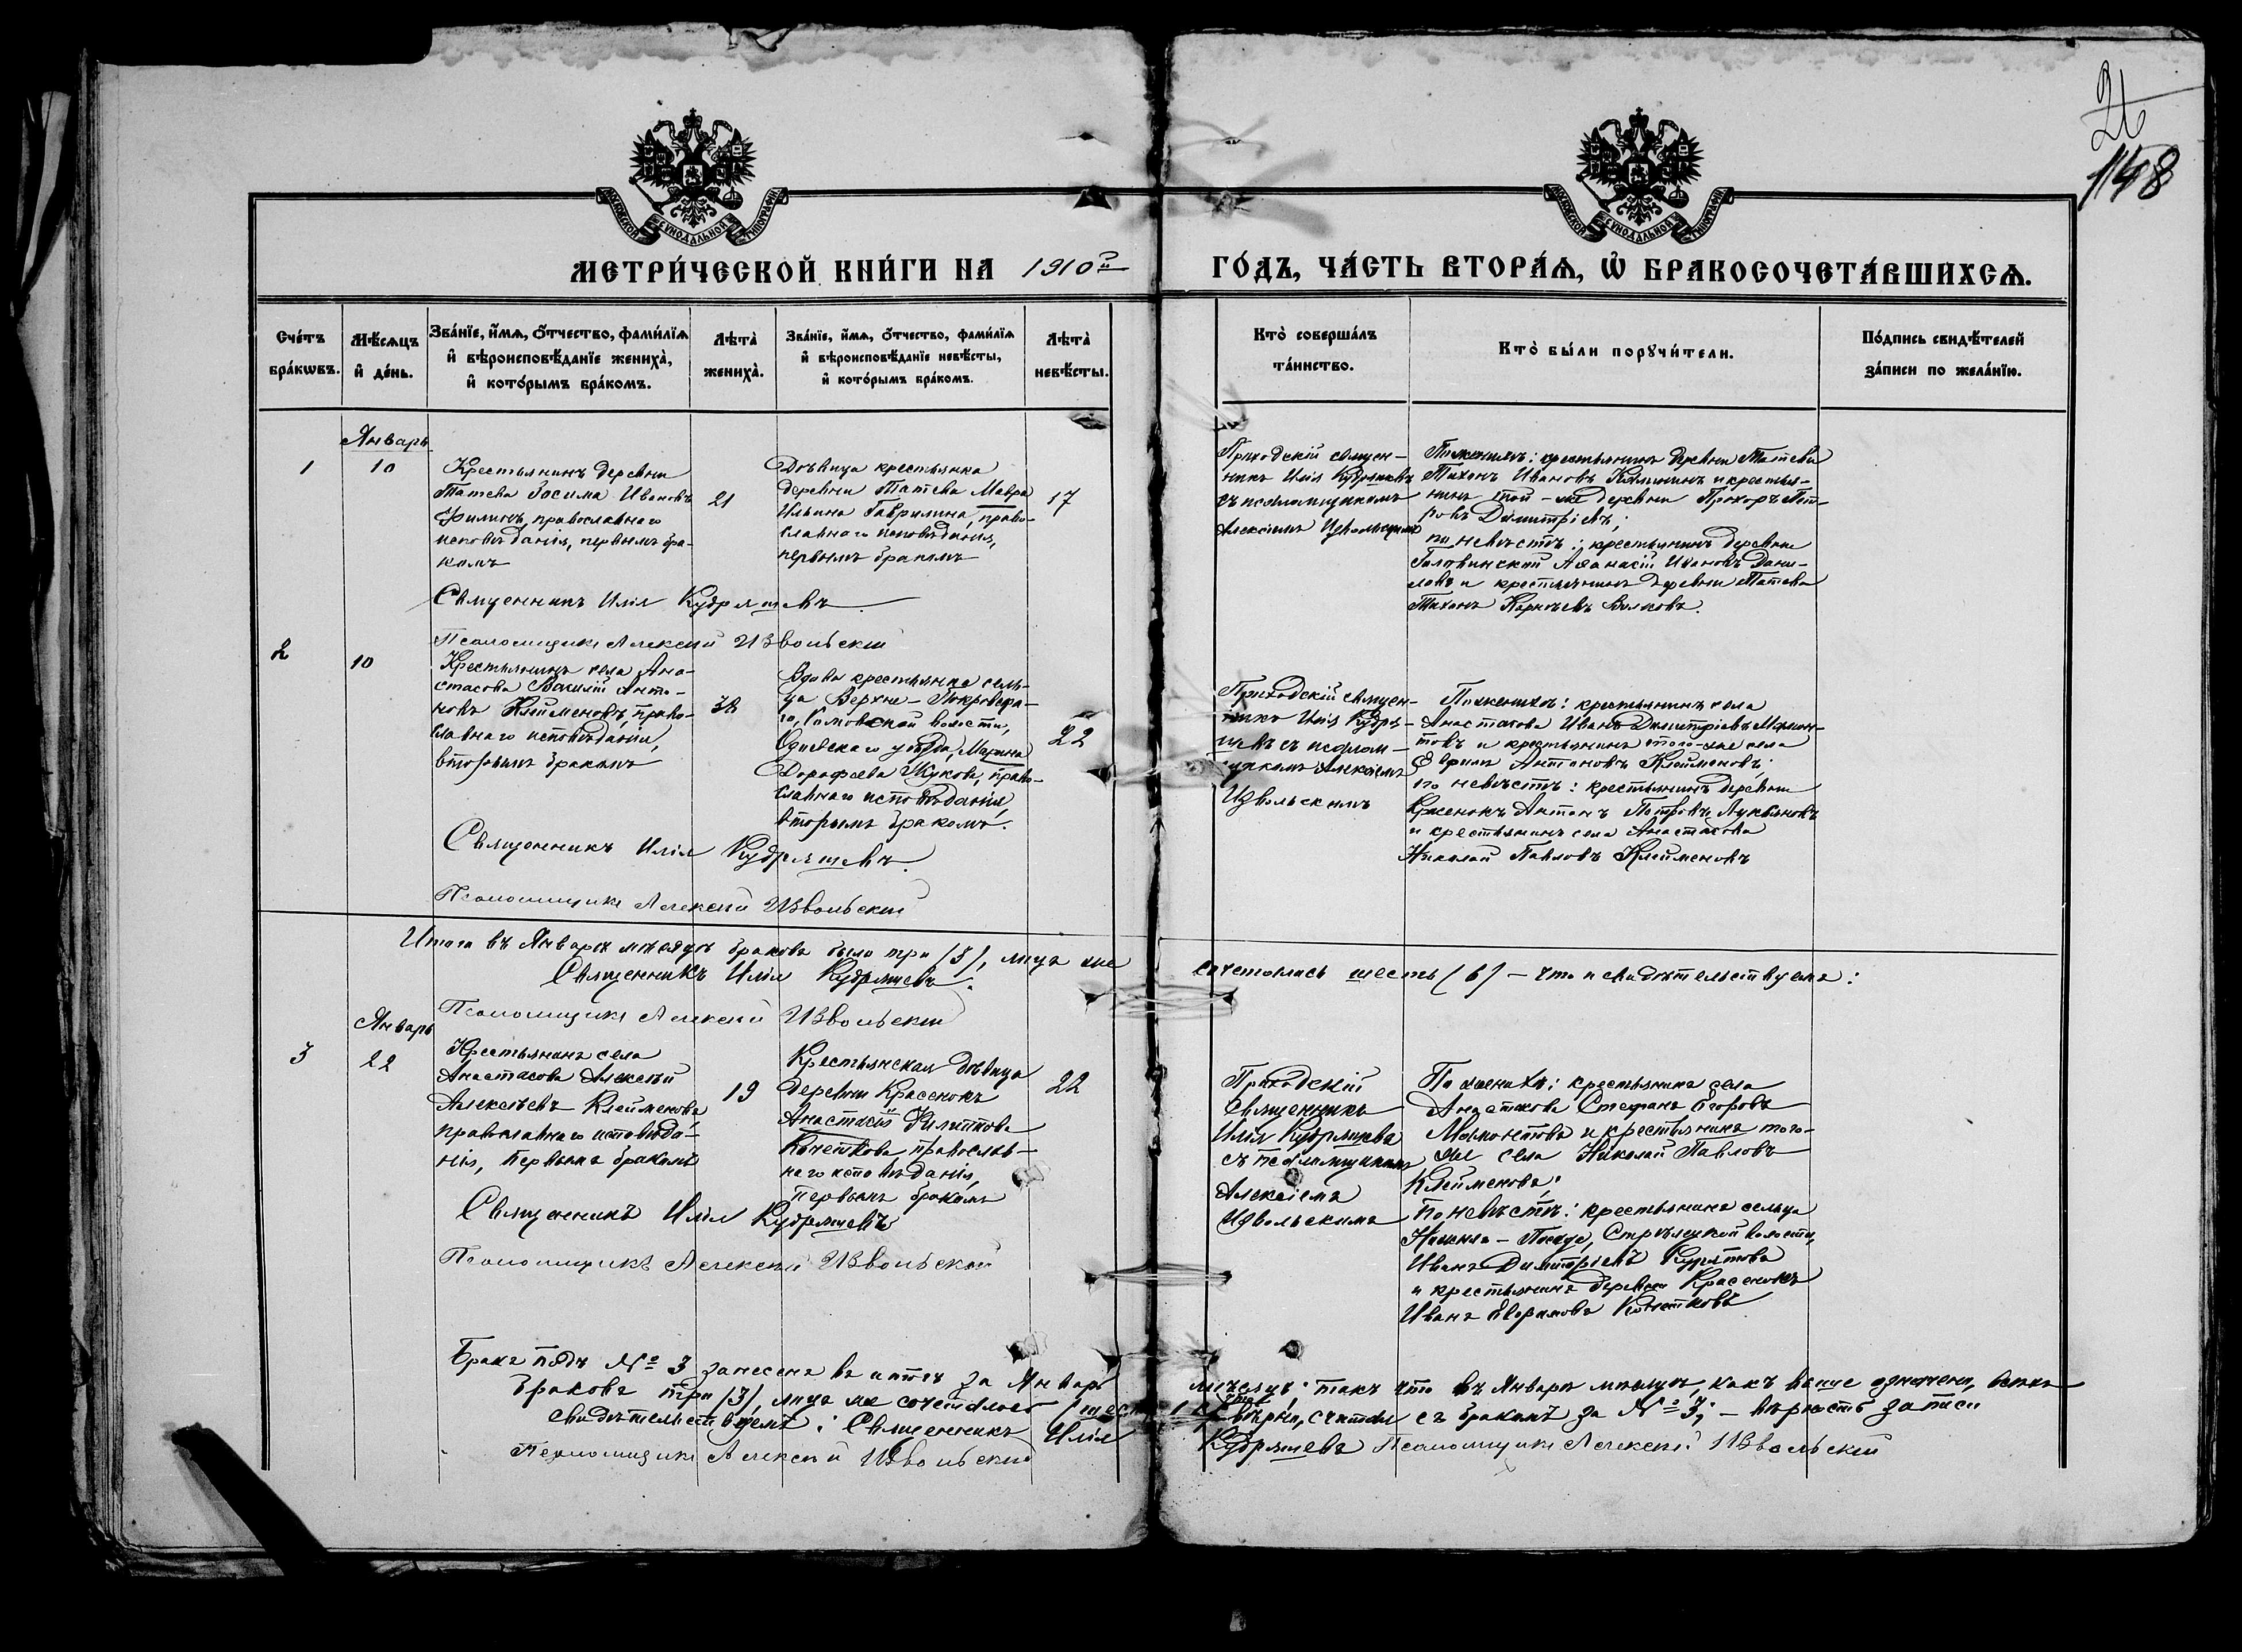 26
148
МОСКОВСКОЙ СѴНОДАЛЬНОЙ ТИПОГРАФІИ
МОСКОВСКОЙ СѴНОДАЛЬНОЙ ТИПОГРАФІИ
МЕТРИ́ЧЕСКОЙ КНИ́ГИ НА 1910й ГО́ДЪ, ЧА́СТЬ ВТОРА́Ѧ, Ѡ҆ БРАКОСОЧЕТА́ВШИХСѦ.
Сче́тъ бра́кѡвъ.
Мѣ́сяцъ и҆ де́нь.
Зва́нїе, и҆́мѧ, ѻ҆́тчество, фами́лїѧ
и҆ вѣроисповѣ́данїе жениха̀,
и҆ кото́рымъ бра́комъ.
Лѣта̀ жениха̀.
Зва́нїе, и҆́мѧ, ѻ҆́тчество, фами́лїѧ
и҆ вѣроисповѣ́данїе невѣ́сты,
и҆ кото́рымъ бра́комъ.
Лѣта̀ невѣ́сты.
Кто̀ соверша́лъ
та́инство.
Кто̀ бы́ли порꙋчи́тели.
По́дпись свидѣ́телей
за́писи по жела́нїю.
Январь
1
10
Крестьянинъ деревни
Татева Зосима Ивановъ
Филинъ, православнаго
исповѣданія, первымъ бра-
комъ
21
Дѣвица крестьянка
деревни Татева Мавра
Ильина Гаврилина, право-
славнаго исповѣданія,
первымъ бракомъ
17
Приходскій священ-
никъ Илія Кудряшевъ
съ псаломщикомъ
Алексіемъ Извольскимъ
По женихѣ: крестьянинъ деревни Татева
Тихонъ Ивановъ Калининъ и крестья-
нинъ той-же деревни Прохоръ Пет-
ровъ Димитріевъ;
по невѣстѣ: крестьянинъ деревни
Головинской Аѳанасій Ивановъ Дани-
ловъ и крестьянинъ деревни Татева
Тихонъ Корнѣевъ Волковъ.
Священникъ Илія Кудряшевъ
Псаломщикъ Алексей Извольскій
2
10
Крестьянинъ села Ана-
стасова Василій Анто-
новъ Клейменовъ, право-
славнаго исповѣданія,
вторымъ бракомъ
38
Вдова крестьянка сель-
ца Верхне-Покровска-
го, волости,
Одоевскаго уѣзда, Марина
Дорофеева Жукова, право-
славнаго исповѣданія,
вторымъ бракомъ.
22
Приходскій священ-
никъ Илія Кудря-
шевъ съ псалом-
щикомъ Алексіемъ
Извольскимъ
По женихѣ: крестьянинъ села
Анастасова Иванъ Димитріевъ Мамон-
товъ и крестьянинъ того-же села
Ефимъ Антоновъ Клейменовъ;
по невѣстѣ: крестьянинъ деревни
Красенокъ Антонъ Петровъ Лукьяновъ
и крестьянинъ села Анастасова
Николай Павловъ Клейменовъ
Священникъ Илія Кудряшевъ.
Псаломщикъ Алексей Извольскій
Итого въ Январѣ мѣсяцѣ браковъ было три (3), лицъ же сочеталось шесть (6) – что и свидѣтельствуемъ:
Священникъ Илія Кудряшевъ.
Псаломщикъ Алексей Извольскій
Январь
3
22
Крестьянинъ села
Анастасова Алексѣй
Алексѣевъ Клейменовъ,
православнаго исповѣда-
нія, первымъ бракомъ
19
Крестьянская дѣвица
деревни Красенокъ
Анастасія Филиппова
Кочеткова, православ-
наго исповѣданія,
первымъ бракомъ
22
Приходскій
священникъ
Илія Кудряшевъ
съ псаломщикомъ
Алексіемъ
Извольскимъ
По женихѣ: крестьянинъ села
Анастасова Стефанъ Егоровъ
Мамонтовъ и крестьянинъ того-
же села Николай Павловъ
Клейменовъ;
По невѣстѣ: крестьянинъ сельца
Стрѣлецкой волости,
Иванъ Димитріевъ
и крестьянинъ деревни Красенокъ
Иванъ Евфимовъ Кочетковъ
Священникъ Илія Кудряшевъ
Псаломщикъ Алексей Извольскій
Бракъ подъ № 3 занесенъ въ итогъ за Январь мѣсяцъ; такъ что въ Январѣ мѣсяцѣ, какъ выше означено, всѣхъ
браковъ три (3), лицъ же сочеталось шесть считая съ бракомъ за № 3; – вѣрность записи
свидѣтельствуемъ: Священникъ Илія Кудряшевъ Псаломщикъ Алексей Извольскій
Псаломщикъ Алексей Извольскій